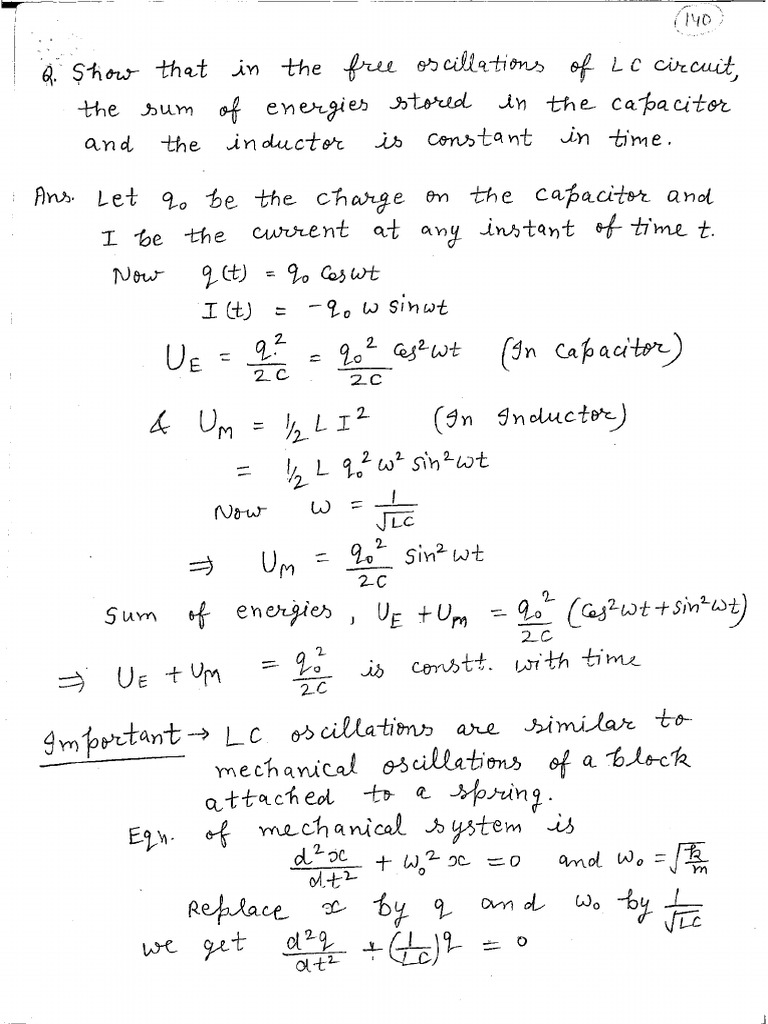 140
Q. Show that in the free oscillations of LC circuit,
the sum of energies stored in the capacitor
and the inductor is constant in time.
Ans. Let q₀ be the charge on the capacitor and
I be the current at any instant of time t.
Now q(t) = q₀ cosωt
I(t) = -q₀ ω sinωt
U_E = q²/2C = q₀²/2C cos²ωt (In capacitor)
& U_M = 1/2 L I² (In Inductor)
= 1/2 L q₀² ω² sin²ωt
Now ω = 1/√LC
⇒ U_M = q₀²/2C sin²ωt
Sum of energies, U_E + U_M = q₀²/2C (cos²ωt + sin²ωt)
⇒ U_E + U_M = q₀²/2C is constt. with time
Important → LC oscillations are similar to
mechanical oscillations of a block
attached to a spring.
Eqn. of mechanical system is
d²x/dt² + ω₀² x = 0 and ω₀ = √k/m
Replace x by q and ω₀ by 1/√LC
we get d²q/dt² + (1/LC) q = 0